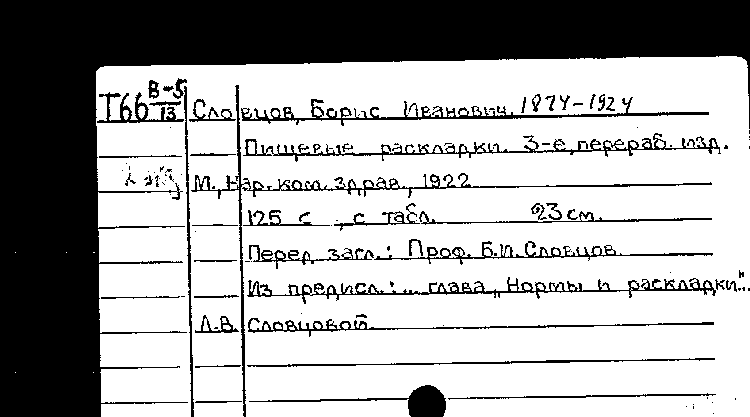 Т66 В-5/13
Словцов, Борис Иванович, 1874-1924
Пищевые раскладки. 3-е, перераб. изд.
М., Нар. ком. здрав., 1922
125 с., с табл. 23 см.
Перед загл.: Проф. Б.И. Словцов.
Из предисл.: ... глава „Нормы и раскладки"...
Л.В. Словцовой.